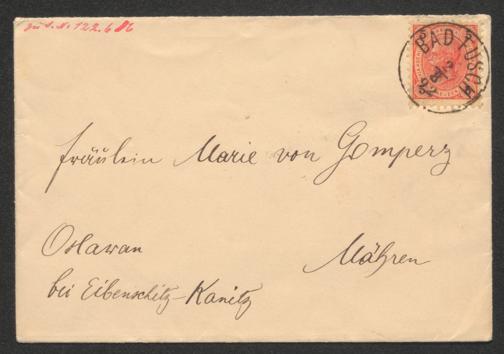 zu I. N. 122.686
BAD FUSCH
92
Fräulein Marie von Gomperz
Oslawan
Mähren
bei Eibenschitz-Kanitz